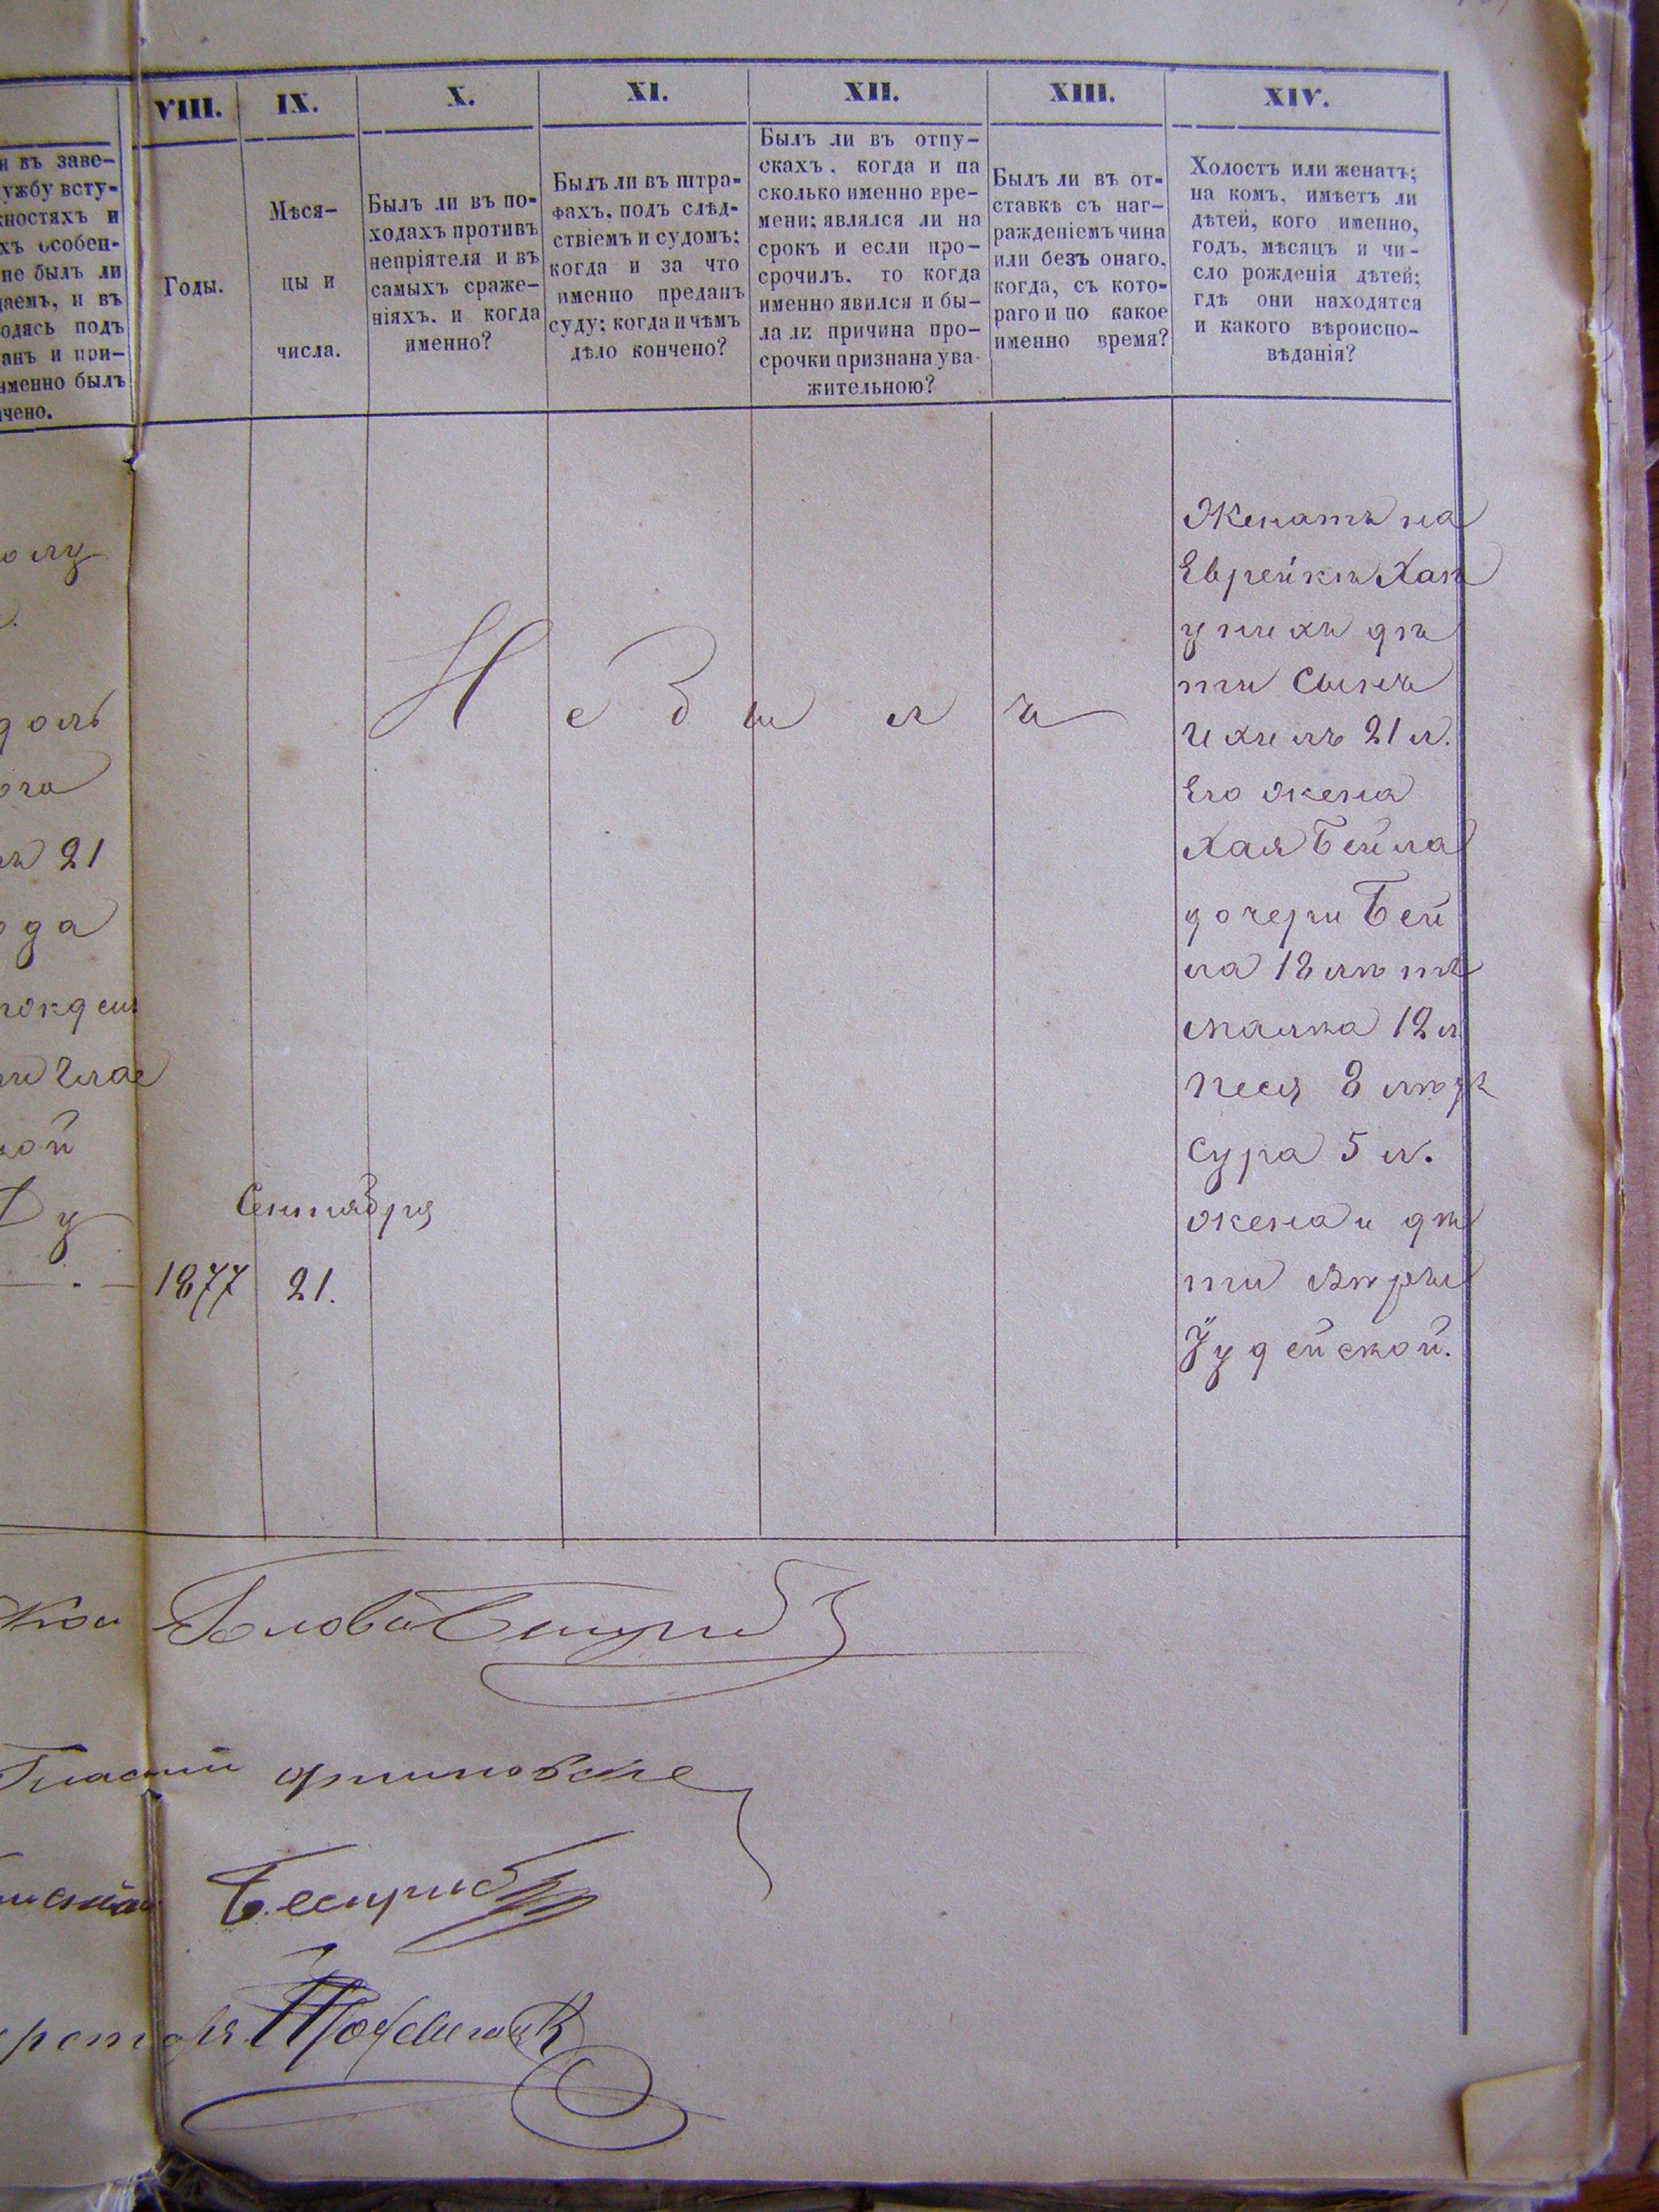 VIII. IX. X. XI. XII. XIII. XIV.
и въ заве-
ужбу всту-
ностяхъ и
хъ особен-
не былъ ли
даемъ, и въ
одясь подъ
анъ и при-
именно былъ
чено.
Годы.
Мѣся-
цы и
числа.
Былъ ли въ по-
ходахъ противъ
непріятеля и въ
самыхъ сраже-
ніяхъ. и когда
именно?
Былъ ли въ штра-
фахъ, подъ слѣд-
ствіемъ и судомъ;
когда и за что
именно преданъ
суду; когда и чѣмъ
дѣло кончено?
Былъ ли въ отпу-
скахъ, когда и на
сколько именно вре-
мени; являлся ли на
срокъ и если про-
срочилъ, то когда
именно явился и бы-
ла ли причина про-
срочки признана ува-
жительною?
Былъ ли въ от-
ставкѣ съ наг-
ражденіемъ чина
или безъ онаго,
когда, съ кото-
раго и по какое
именно время?
Холостъ или женатъ;
на комъ, имѣетъ ли
дѣтей, кого именно,
годъ, мѣсяцъ и чи-
сло рожденія дѣтей;
гдѣ они находятся
и какого вѣроиспо-
вѣданія?
21
ой
Сентября
1877 21.
Не былъ
Женатъ на
Еврейкѣ Хан
у нихъ дѣ
ти сынъ
Ихиль 21 л.
Его жена
Хая Бейла
дочери Бей
ла 18 лѣтъ
Малка 12 л.
Песя 8 лѣтъ
Сура 5 л.
жена и дѣ
ти вѣры
Іудейской.